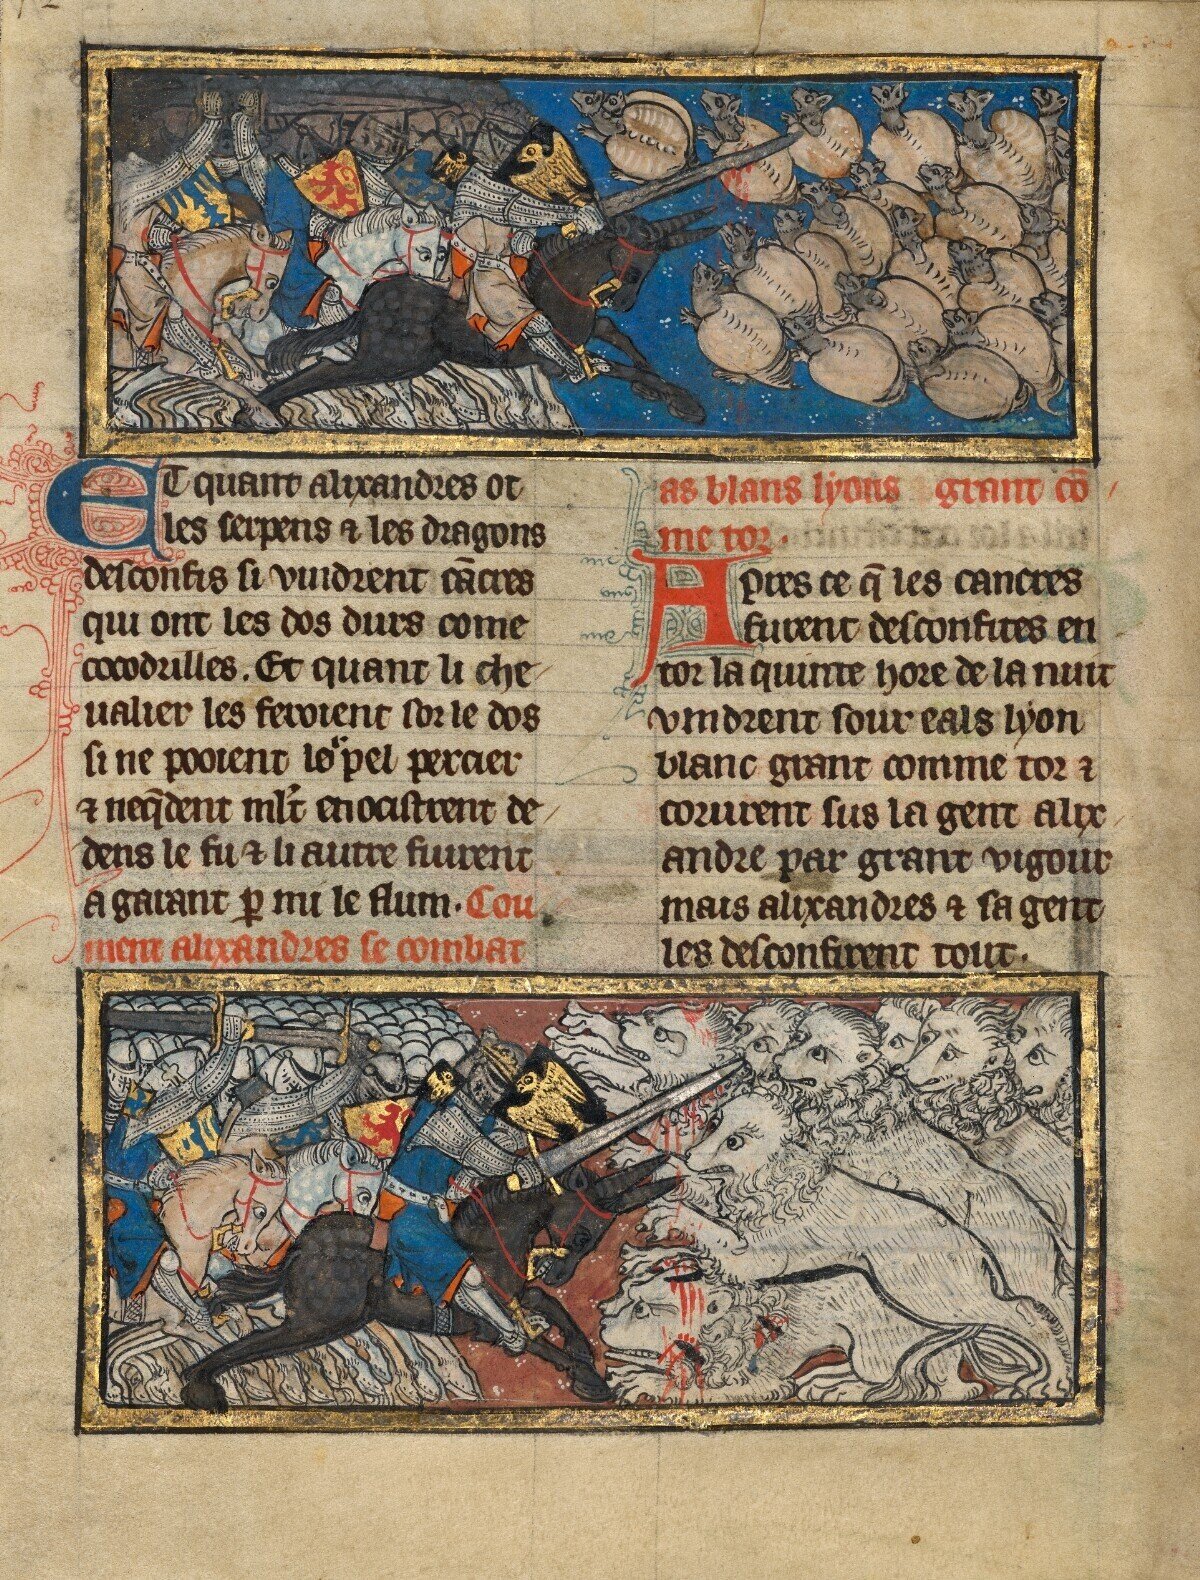 ET quant alixandres ot
les serpens ⁊ les dragons
desconfis si vindrent cācres
qui ont les dos durs come
cocodrilles. Et quant li che
ualier les feroient sor le dos
si ne pooient le pel percier
⁊ neq̄dent ml't en ocistrent de
dens le fu ⁊ li autre fuirent
a garant ꝑ mi le flum. Cou
ment alixandres se combat
as blans lyons grant cō
me tor.
Apres ce q̄ les cancres
furent desconfites en
tor la quinte hore de la nuit
vindrent sour eals lyon
blanc grant comme tor ⁊
corurent sus la gent alix
andre par grant vigour
mais alixandres ⁊ sa gent
les desconfirent tout.